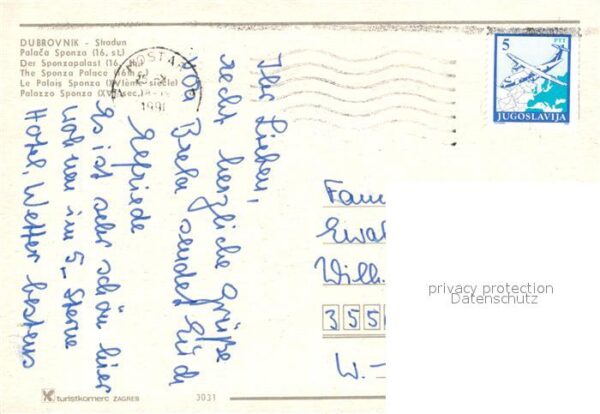 DUBROVNIK - Stradun
Palača Sponza (16. st.)
Der Sponzapalast (16.
The Sponza Palace (16th
Le Palais Sponza (XVIème siècle)
Palazzo Sponza (XVI sec.)
MOSTAR
1991
5 PTT
JUGOSLAVIJA
Ihr Lieben,
recht herzliche Grüße
von Brela sendet Euch
Elfriede
Es ist sehr schön hier
wohnen im 5 Sterne
Hotel. Wetter bestens
Fam
Ewal
Wilh.
355
W.-
privacy protection
Datenschutz
turistkomerc ZAGREB
3031